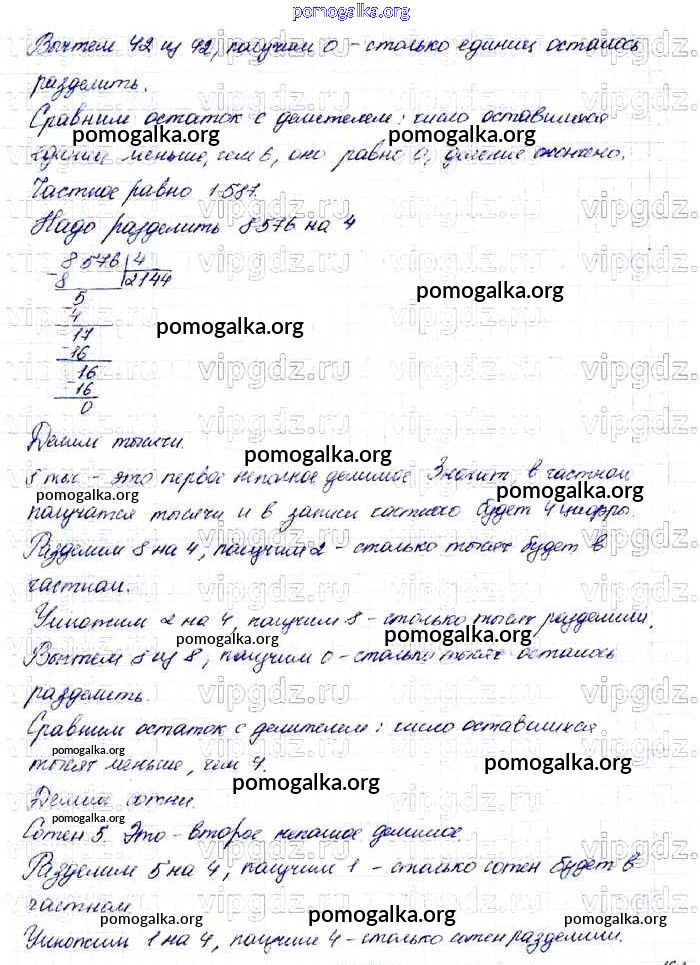 pomogalka.org
Вычтем 42 из 42, получим 0 – столько единиц осталось
разделить.
Сравним остаток с делителем: число оставшихся
pomogalka.org pomogalka.org
единиц меньше, чем 6, оно равно 0, деление окончено.
Частное равно 1587.
Надо разделить 8576 на 4
8 576 4
- 8 2144
5
- 4
17
- 16
16
- 16
0
pomogalka.org
pomogalka.org
Делим тысячи.
pomogalka.org
8 тыс – это первое неполное делимое. Значит, в частном
pomogalka.org pomogalka.org
получатся тысячи и в записи частного будет 4 цифры.
Разделим 8 на 4, получим 2 – столько тысяч будет в
частном.
Умножим 2 на 4, получим 8 – столько тысяч разделили.
pomogalka.org pomogalka.org
Вычтем 8 из 8, получим 0 – столько тысяч осталось
разделить.
Сравним остаток с делителем: число оставшихся
pomogalka.org
тысяч меньше, чем 4.
pomogalka.org pomogalka.org
Делим сотни.
Сотен 5. Это – второе неполное делимое.
Разделим 5 на 4, получим 1 – столько сотен будет в
частном
pomogalka.org pomogalka.org pomogalka.org
Умножим 1 на 4, получим 4 – столько сотен разделили.